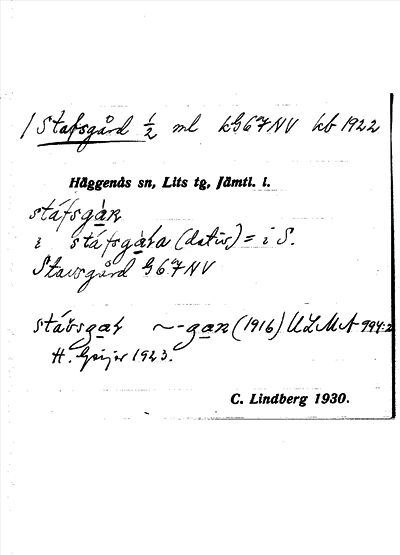 / Stafsgård ½ ml kG67NV kb 1922
Häggenås sn, Lits tg, Jämtl. l.
stáfsgàṟ
i stáfsgàta (dativ) = i S.
Stavsgård G67NV
stávsgat ~-gan (1916) ULMA 994:2
H. Geijer 1923.
C. Lindberg 1930.